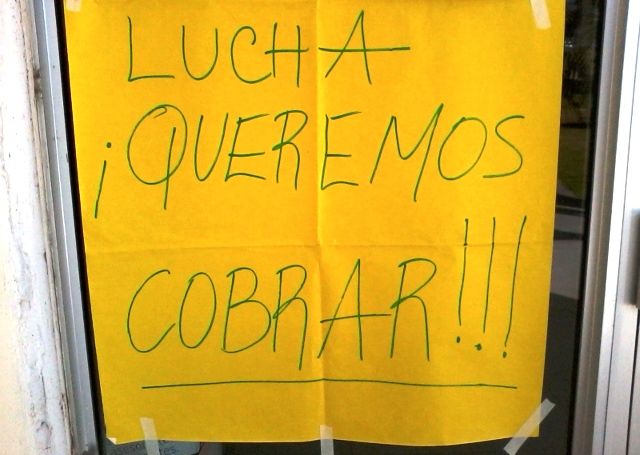 LUCHA
¡QUEREMOS
COBRAR!!!